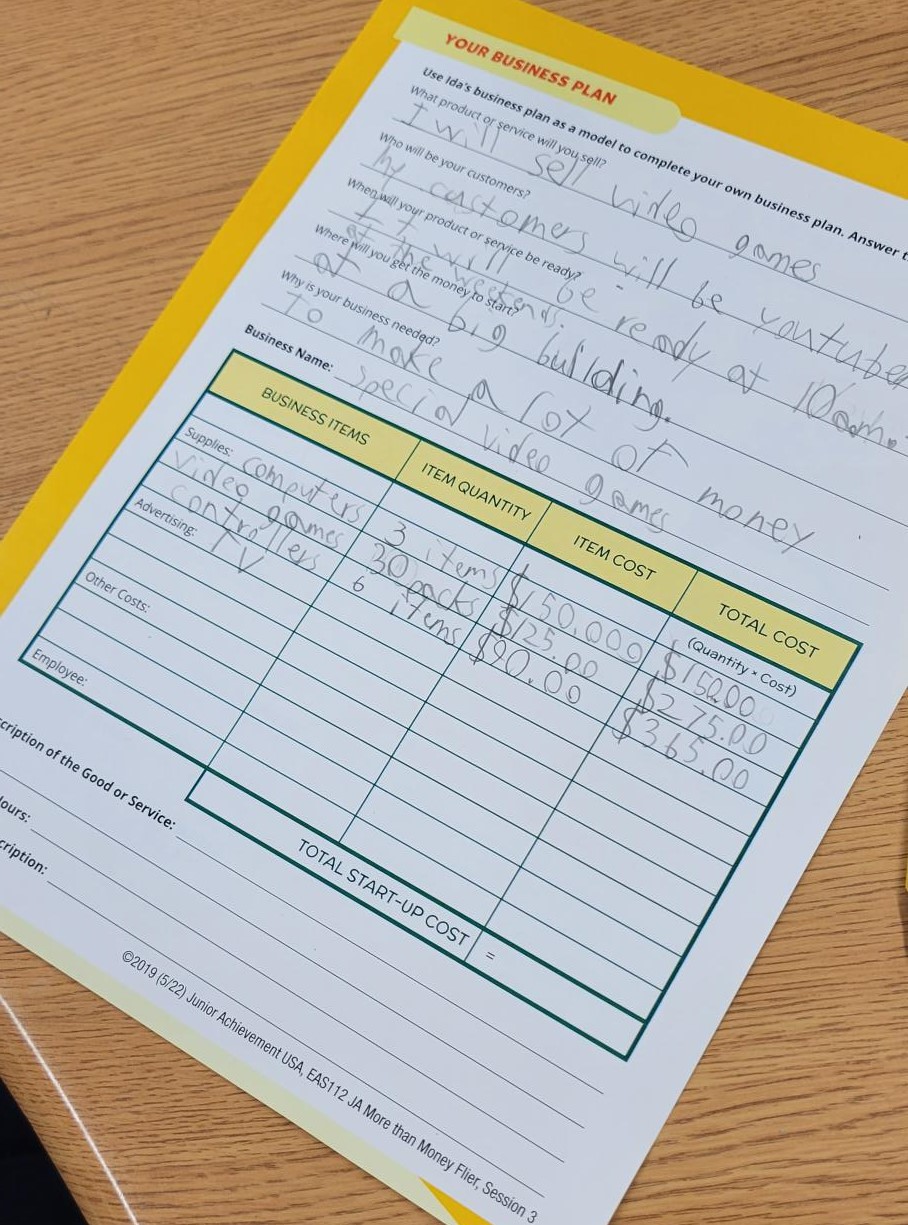 YOUR BUSINESS PLAN
Use Ida's business plan as a model to complete your own business plan. Answer
What product or service will you sell?
I will sell video games
Who will be your customers?
my customers will be youtuber
When will your product or service be ready?
It will be ready at 10am.
at the weekends.
Where will you get the money to start?
at a big building.
Why is your business needed?
To make a lot of money
Business Name: special video games
BUSINESS ITEMS ITEM QUANTITY ITEM COST TOTAL COST
(Quantity × Cost)
Supplies: computers 3 items $150.00 $150.00
video games 30 packs $125.00 $275.00
controllers 6 items $90.00 $365.00
Advertising: TV
Other Costs:
Employee:
TOTAL START-UP COST =
cription of the Good or Service:
ours:
cription:
©2019 (5/22) Junior Achievement USA, EAS112 JA More than Money Flier, Session 3